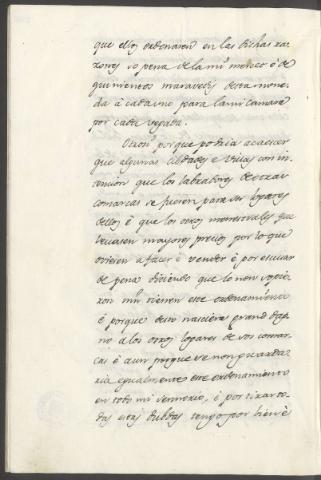 que ellos ordenaren en las dichas ra
zones so pena de la mi merced é de
quinientos maravedis desta mone
da à cada uno para la mi camara
por cada vegada.
Otrosi, porque podria acaescer
que algunas Cibdades e Villas con in
tencion que los labradores de otras
comarcas se fuesen para sus logares
dellos é que los otros menestrales que
levasen mayores precios por lo que
oviesen a facer é vender é por escusar
de pena diciendo que lo non sopie
ron nin tienen este ordenamiento
é porque desto nasciera grand dap
no a los otros logares de sus comar
cas é aun porque se non guarda
ria egualmente este ordenamiento
en todo mi sennorio, é por tirar to
das estas dubdas tengo por bien é